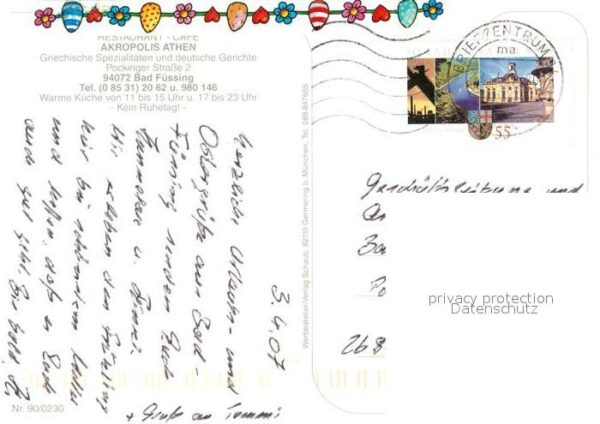 RESTAURANT - CAFE
AKROPOLIS ATHEN
Griechische Spezialitäten und deutsche Gerichte
Pockinger Straße 2
94072 Bad Füssing
Tel. (0 85 31) 20 62 u. 980 146
Warme Küche von 11 bis 15 Uhr u. 17 bis 23 Uhr
- Kein Ruhetag! -
Werbeatelier-Verlag Schaub, 82110 Germering b. München, Tel. 089-847505
BRIEFZENTRUM
ma
55
3.4.07
Herzliche Urlaubs- und
Ostergrüße aus Bad-
Füssing senden Euch
Hannelore u. Ernst.
Wir erleben den Frühling
hier bei schönstem Wetter
und hoffen, daß es Euch
auch gut geht. Bis bald
+ Gruß an Tommi
Geschäftsleitung und
268
privacy protection
Datenschutz
Nr. 90/0230